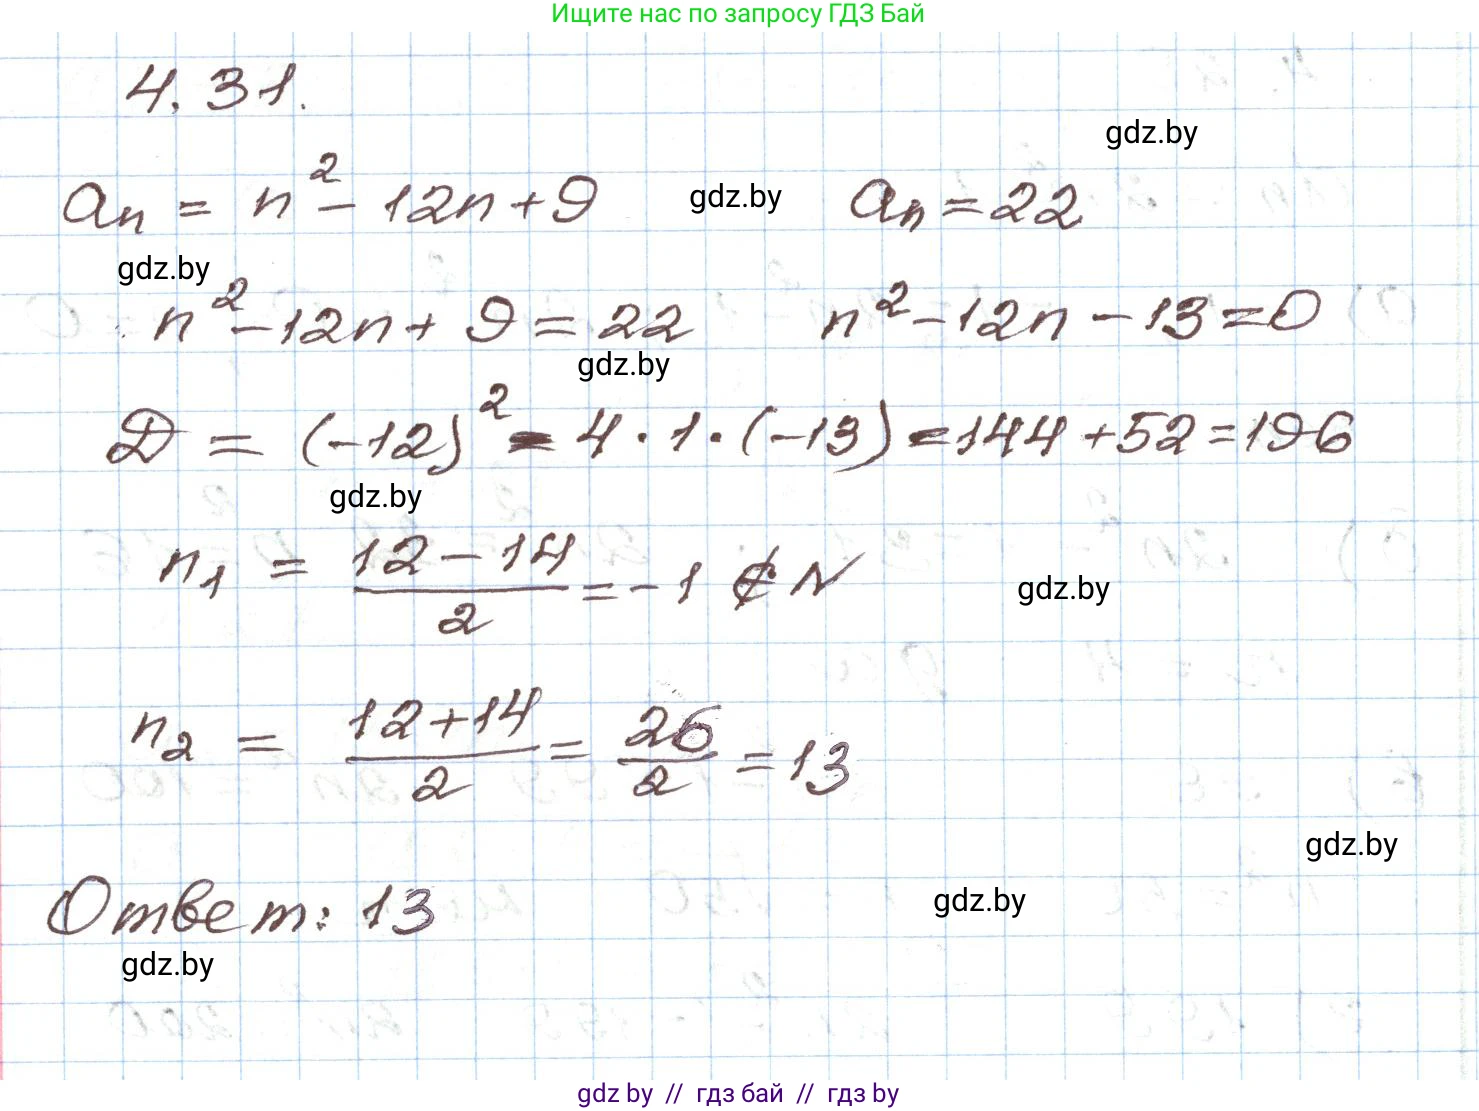 Ищите нас по запросу ГДЗ Бай
4.31.
gdz.by
aₙ = n² - 12n + 9 gdz.by aₙ = 22
gdz.by
n² - 12n + 9 = 22 n² - 12n - 13 = 0
gdz.by
D = (-12)² - 4 · 1 · (-13) = 144 + 52 = 196
gdz.by
n₁ = (12 - 14)/2 = -1 ∉ N gdz.by
n₂ = (12 + 14)/2 = 26/2 = 13
gdz.by
Ответ: 13 gdz.by
gdz.by
gdz by // гдз бай // гдз by